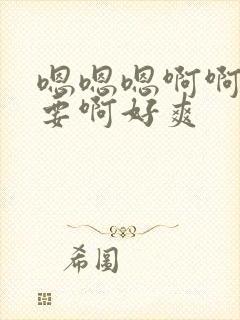 嗯嗯嗯啊啊
要啊好爽
希图